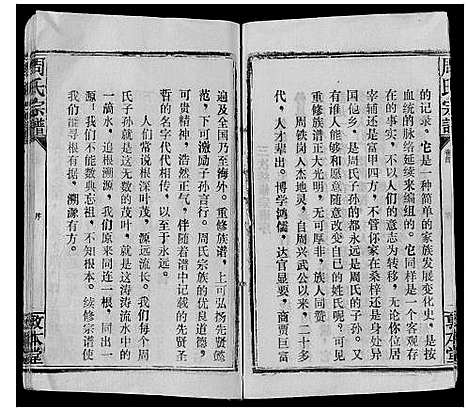 周氏宗譜
的记录。它是一种简单的家族发展变化史，是按
血统的脉络延续来编组的。它同样是一个客观存
在的事实，不以人们的意志为转移，无论你位居
宰辅还是富甲四方，不管你家在桑梓还是身处异
国他乡，是周氏子孙的都永远是周氏的子孙。又
有谁人能够和愿意随意改变自己的姓氏呢？可见
重修族谱正大光明，无可厚非，族人同赞。
周铁岗人杰地灵，自周兴武公以来，二十多
代，人才辈出。博学鸿儒，达官显要，商贾巨富
遍及全国乃至海外。重修族谱，上可弘扬先贤懿
范，下可激励子孙言行。周氏宗族的优良道德，
可贵精神，浩然正气，伴随着谱中记载的先贤圣
哲的名字代代相传，以至于永远。
人们常说根深叶茂，源远流长。我们每个周
氏子孙就是这一无数的茂叶，就是这涛涛流水中的
一滴水，追根溯源，我们原来同连一根，同出一
源！我们不能数典忘祖，不知根本。续修宗谱使
我们能寻根有据，溯源有方。
周氏宗譜
序
敦本堂